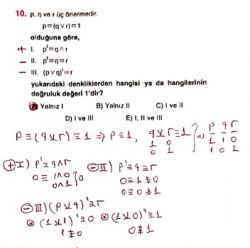 10. p, q ve r üç önermedir.
p≡(q∨r)≡1
olduğuna göre,
+ I. p'≡q∧r
− II. p'≡q≡r
− III. (p∨q)'≡r
yukarıdaki denkliklerden hangisi ya da hangilerinin
doğruluk değeri 1'dir?
A) Yalnız I B) Yalnız II C) I ve II
D) I ve III E) I, II ve III
p≡(q∨r)≡1 ⇒ p≡1, q∨r≡1 ⇒ p q r
1 0 1 1 0
0 1 1 0 1
+ I) p'≡q∧r − II) p'≡q≡r
0≡1∧0 0≡1≢0
0∧1 0≡0≢1
− III) (p∨q)'≡r
(1∨1)'≡0 (1∨0)'≡1
0≢1